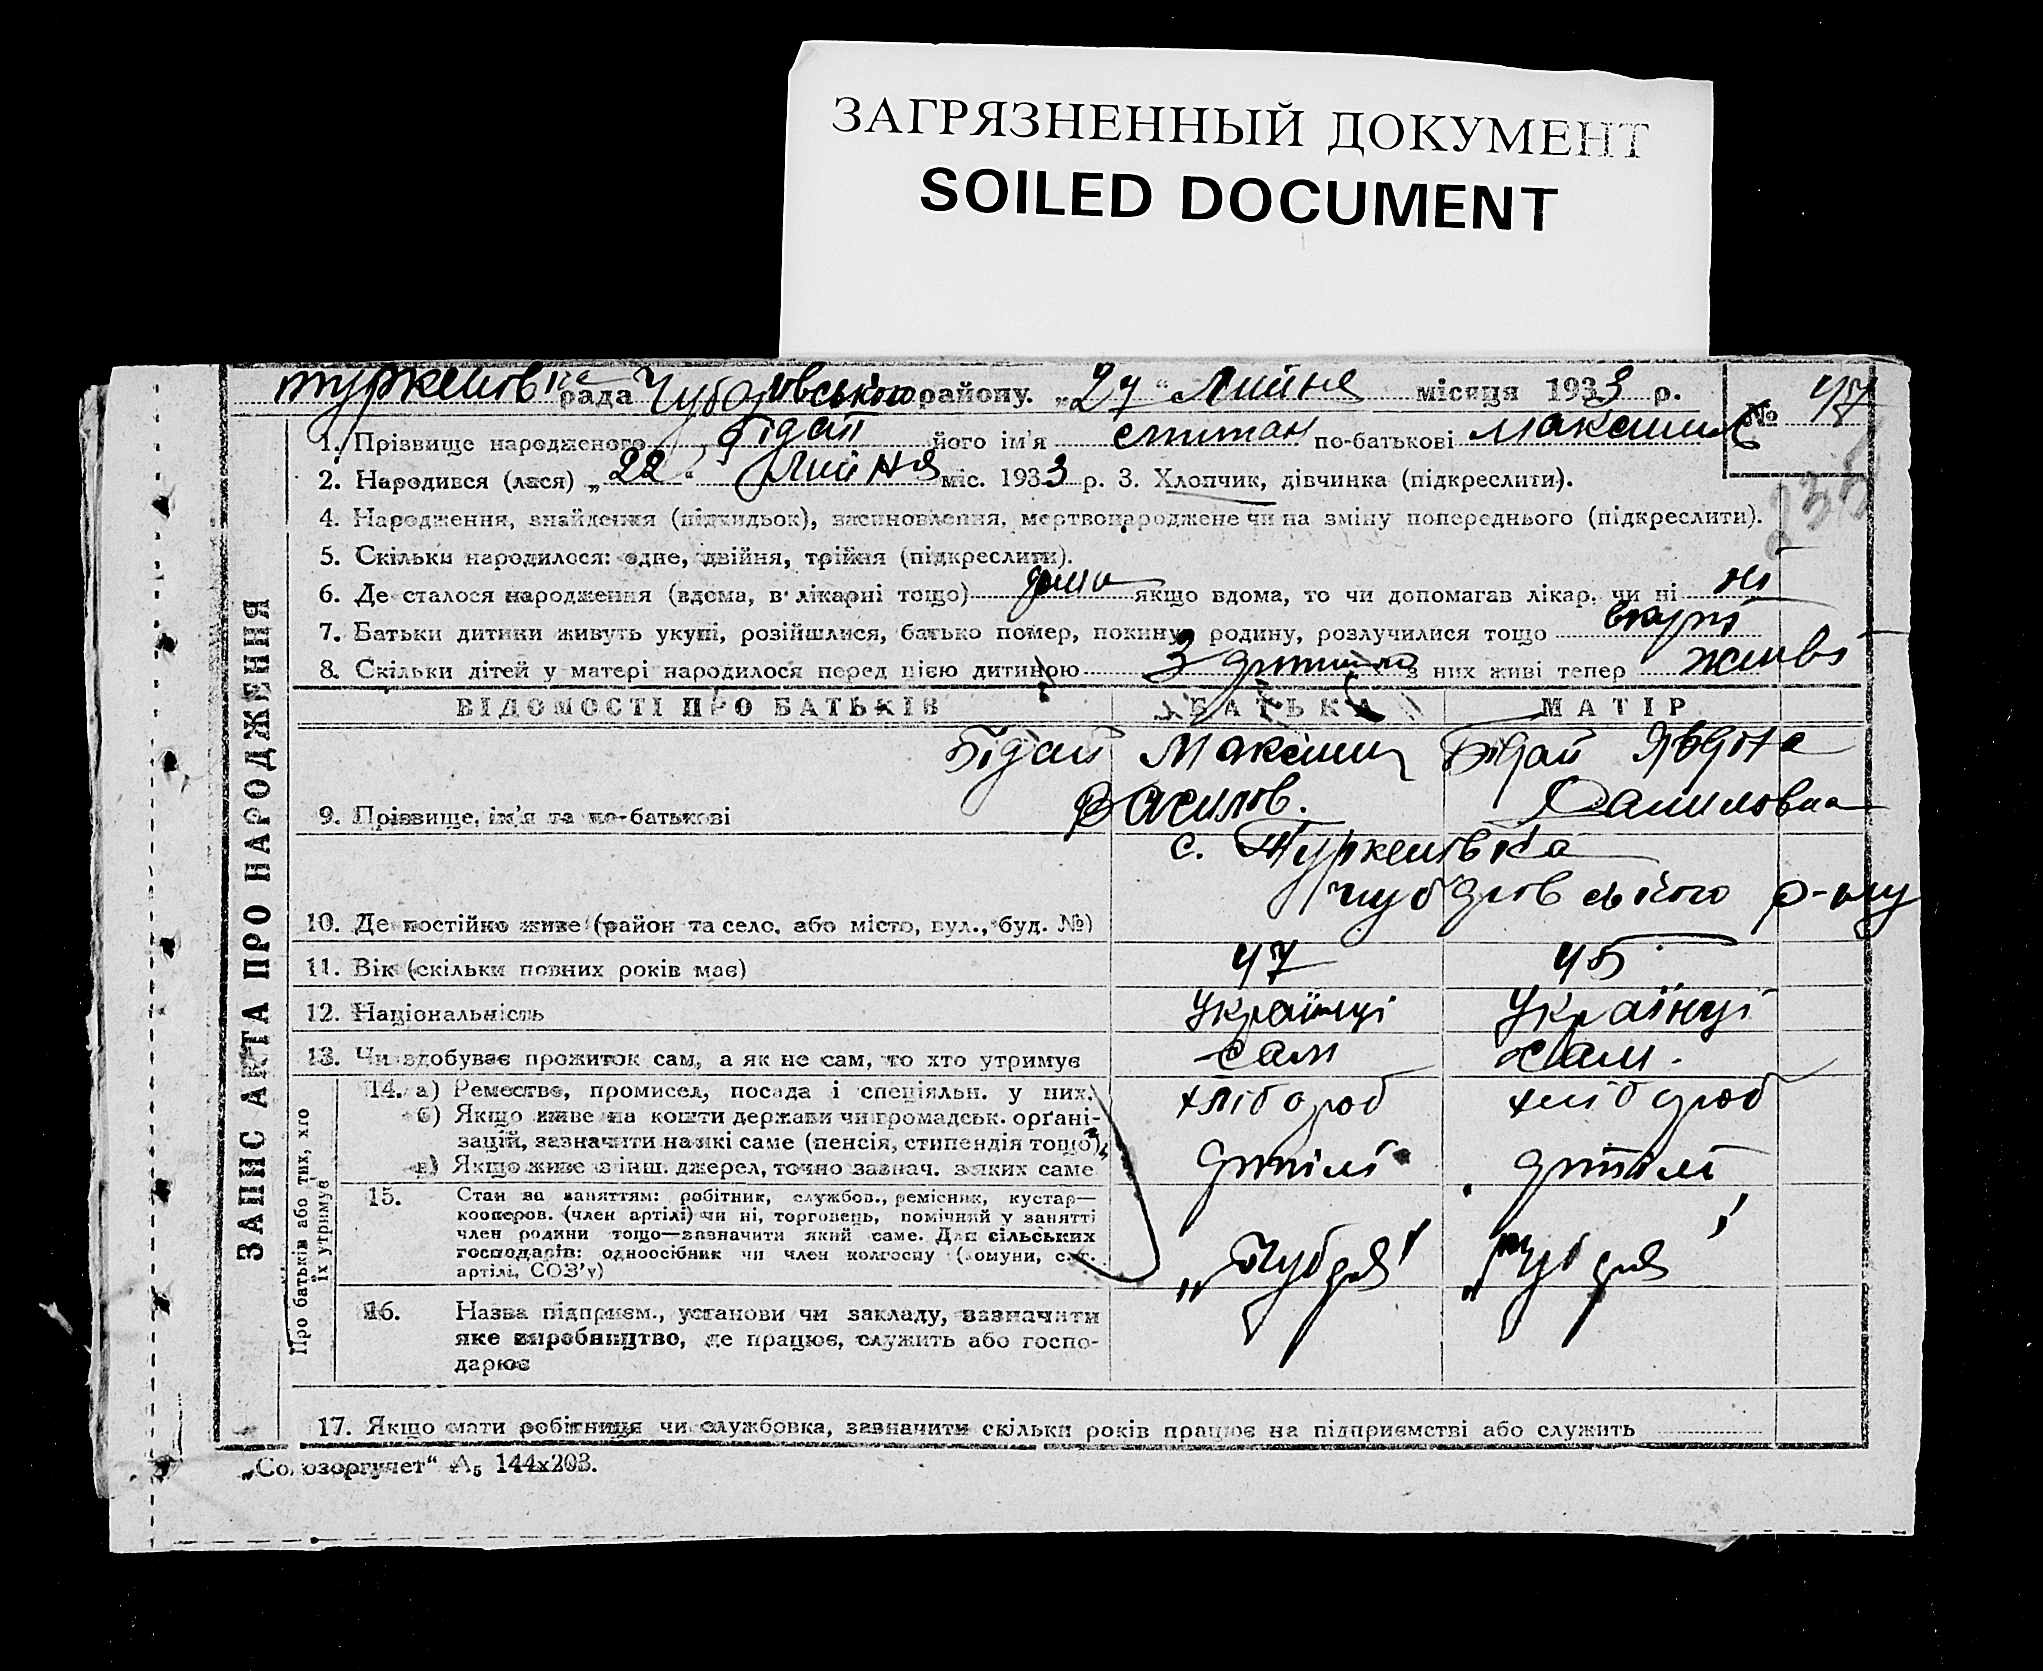 ЗАГРЯЗНЕННЫЙ ДОКУМЕНТ
SOILED DOCUMENT
Туркенівка рада Чубарівського району. „27“ Липня місяця 1933 р. № 47
1. Прізвище народженого Бідай його ім'я Степан по-батькові Максим
2. Народився (лася) „22“ Липня міс. 1933 р. 3. Хлопчик, дівчинка (підкреслити).
4. Народження, знайдення (підкидьок), всиновлення, мертвонароджене чи на зміну попереднього (підкреслити).
5. Скільки народилося: одне, двійня, трійня (підкреслити).
6. Де сталося народження (вдома, в лікарні тощо) дома якщо вдома, то чи допомагав лікар, чи ні ні
7. Батьки дитини живуть укупі, розійшлися, батько помер, покинув родину, розлучилися тощо вкупі
8. Скільки дітей у матері народилося перед цією дитиною 3 з них живі тепер живі
ВІДОМОСТІ ПРО БАТЬКІВ БАТЬКА МАТІР
Бідай Максим Бідай Явдоха
Василов. Даниловна
9. Прізвище, ім'я та по-батькові
с. Туркенівка
Чубарівського р-ну
10. Де постійно живе (район та село, або місто, вул., буд. №)
11. Вік (скільки повних років має) 47 45
12. Національність Українці Українці
13. Чи здобуває прожиток сам, а як не сам, то хто утримує сам сам.
14. а) Ремество, промисел, посада і спеціяльн. у них. хлібороб хлібороб
б) Якщо живе на кошти держави чи громадськ. органі-
зацій, зазначити на які саме (пенсія, стипендія тощо)
в) Якщо живе з інш. джерел, точно зазнач. з яких саме артілі артілі
15. Стан за заняттям: робітник, службов., ремісник, кустар—
кооперов. (член артілі) чи ні, торговець, помічний у занятті
член родини тощо—зазначити який саме. Для сільських
господарів: одноосібник чи член колгоспу (комуни, с.-г.
артілі, СОЗ'у)
„Чубаря“ „Чубаря“
16. Назва підприєм., установи чи закладу, зазначити
яке виробництво, де працює, служить або госпо-
дарює
17. Якщо мати робітниця чи службовка, зазначити скільки років працює на підприємстві або служить
„Союзоргучет“ А₅ 144х203.
ЗАПИС АКТА ПРО НАРОДЖЕННЯ
Про батьків або тих, хто
їх утримує